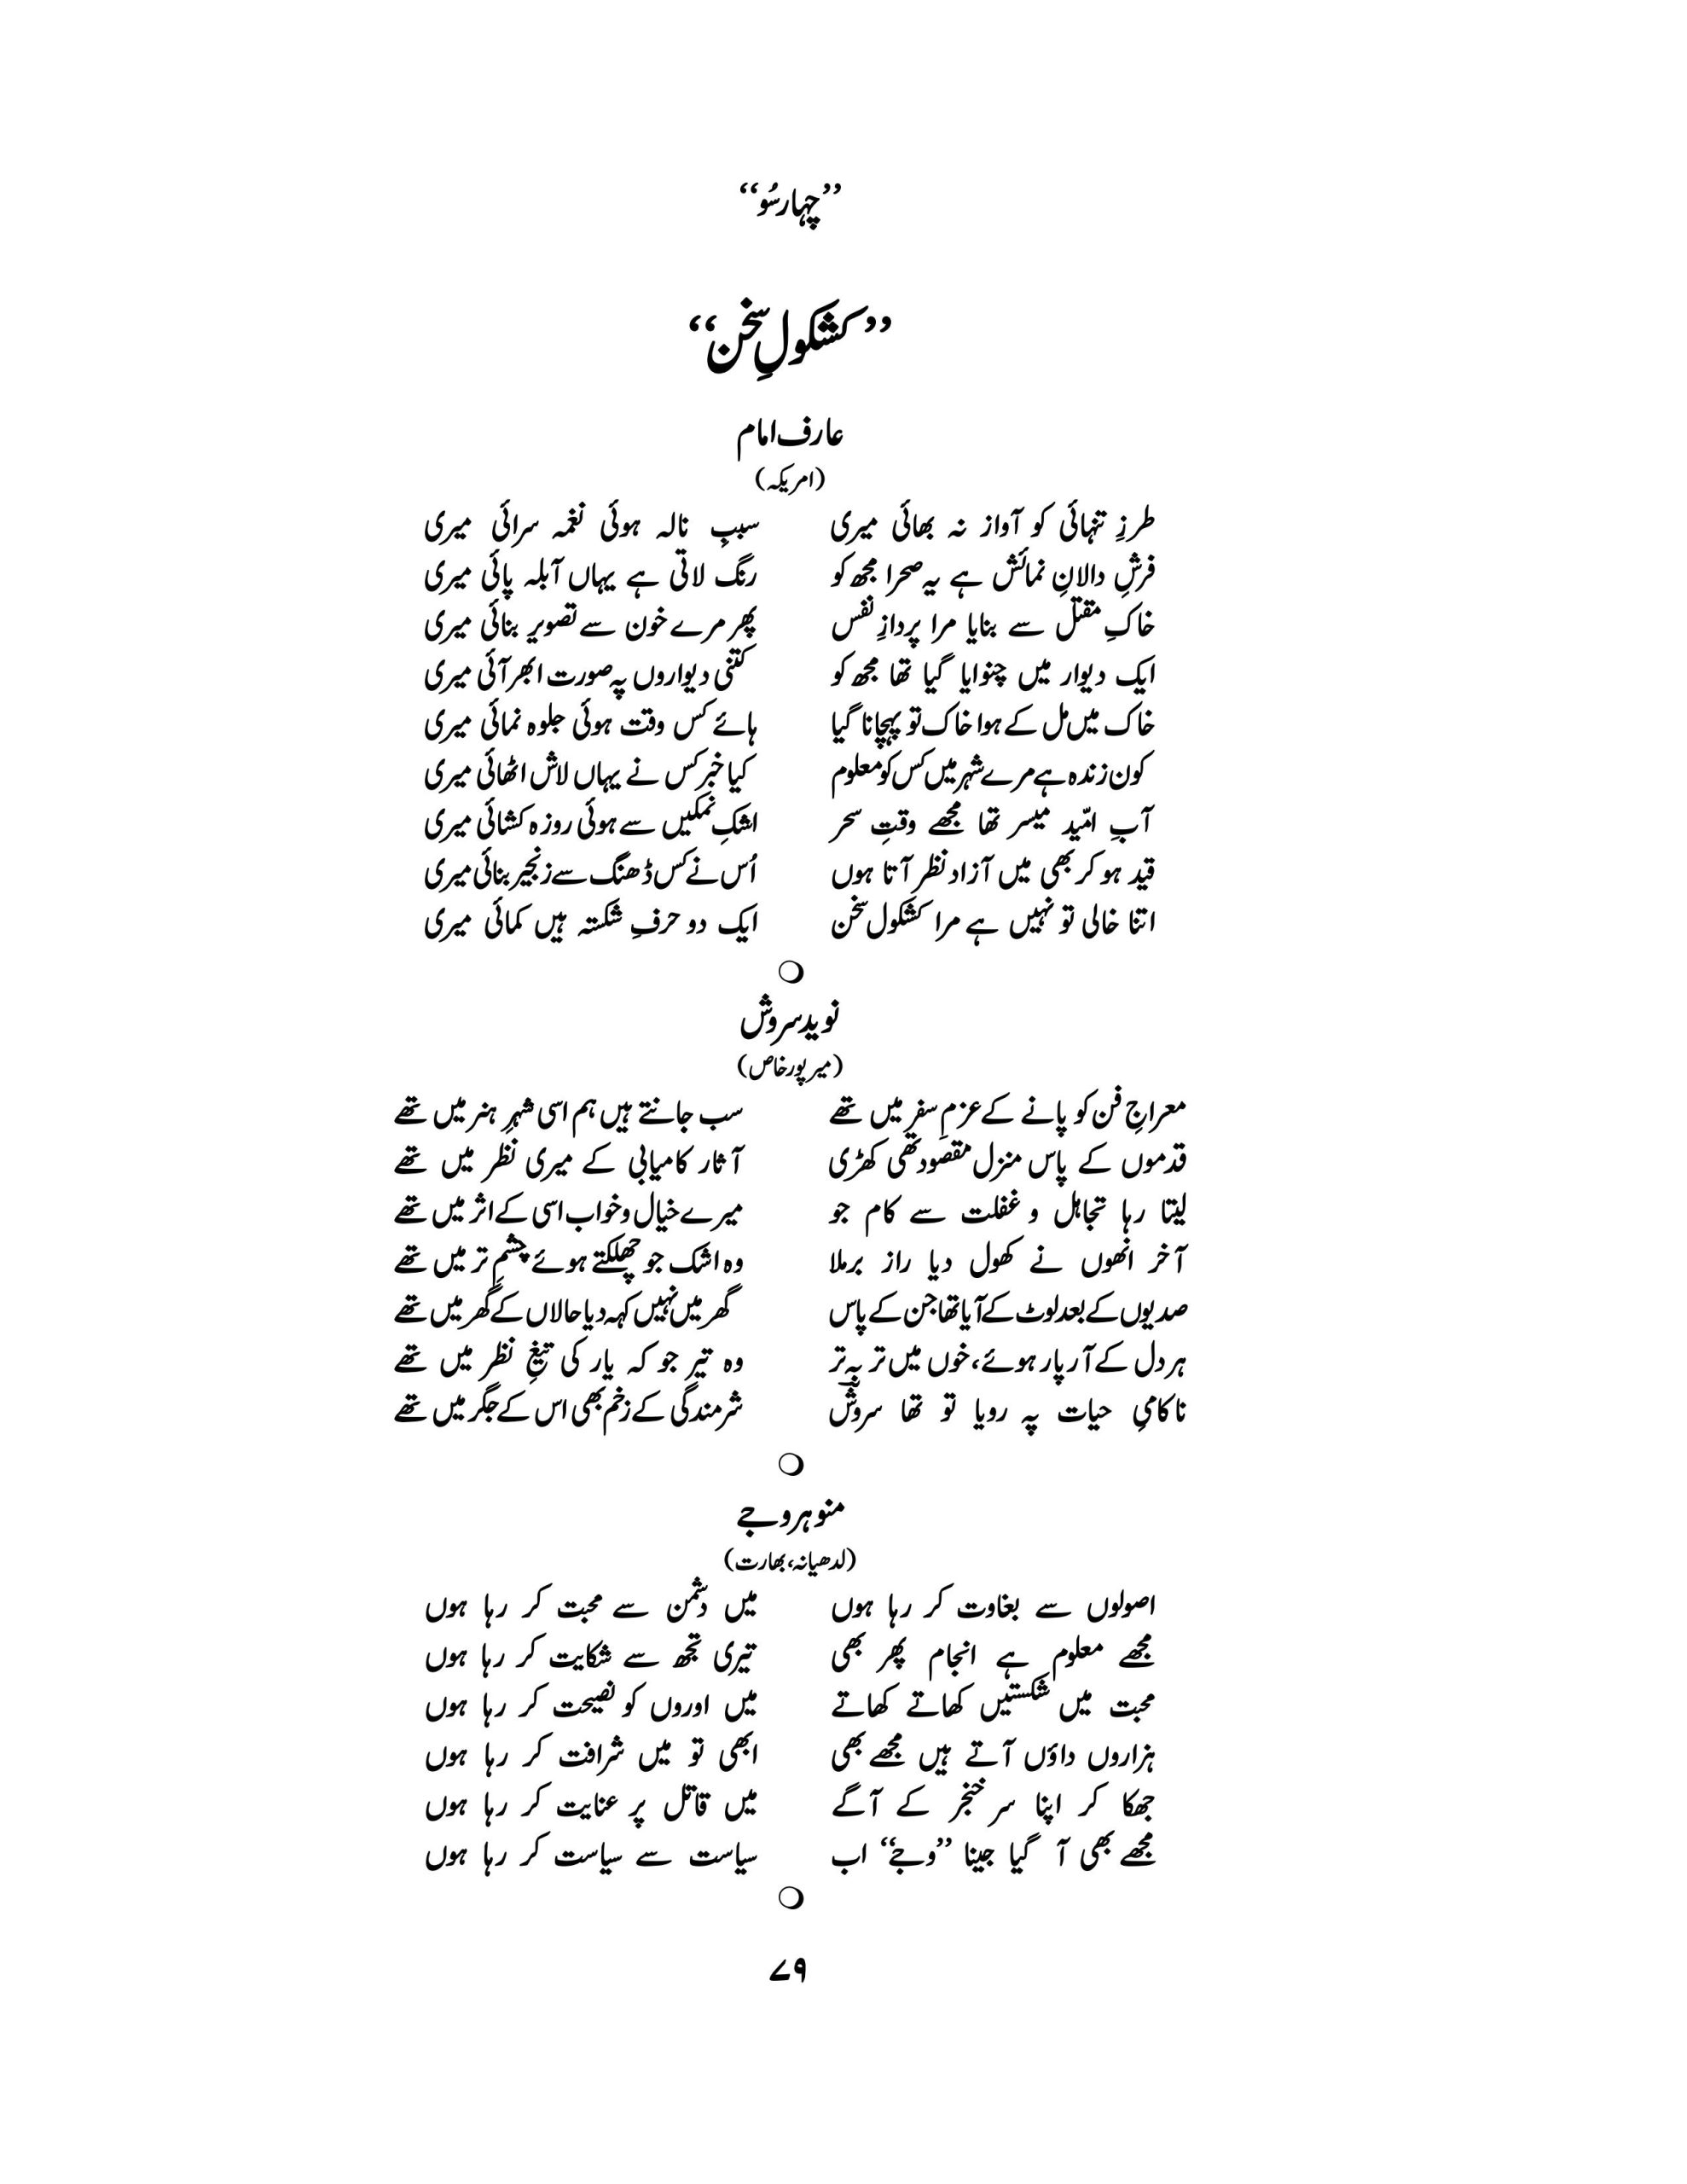 ”چہارسُو“
”کشکولِ سخن“
عارف امام
(امریکہ)
طرزِ تنہائی کو آواز نہ بھائی میری سببِ نالہ ہوئی نغمہ سرائی میری
فرشِ دالانِ نمائش ہے یہ صحرا مجھ کو رنگ لاتی ہے یہاں آبلہ پائی میری
خاکِ مقتل سے بنایا مرا پردازِ نفس پھر مرے خون سے تصویر بنائی میری
ایک دیوار میں چنوایا گیا تھا مجھ کو کتنی دیواروں پہ صورت ابھر آئی میری
خاک میں مل کے ہوا خاک تو پہچانا گیا ہائے کس وقت ہوئی جلوہ نمائی میری
کون زندہ ہے مرے شہر میں کس کو معلوم کیا خبر کس نے یہاں لاش اٹھائی میری
آبِ امّید میسر تھا مجھے وقتِ سحر اشکِ نمکیں سے ہوئی روزہ کشائی میری
قید ہو کر بھی میں آزاد نظر آتا ہوں اُس نے کس ڈھنگ سے زنجیر بنائی میری
اتنا خالی تو نہیں ہے مرا کشکول سخن ایک دو حرفِ شکستہ ہیں کمائی میری
نوید سروش
(میر پور خاص)
معراجِ فن کو پانے کے عزمِ سفر میں تھے سب جانتے ہیں ہم اسی شہرِ ہنر میں تھے
قدموں کے پاس منزل مقصود تھی کھڑی آثار کامیابی کے میری نظر میں تھے
لیتا رہا تجاہل و غفلت سے کام جو میرے خیال و خواب اسی کے اثر میں تھے
آخر انھوں نے کھول دیا راز برملا وہ اشک جو چھلکتے ہوئے چشمِ تر میں تھے
صدیوں کے بعد لوٹ کے آیا تھا جن کے پاس گھر میں نہیں کہہ دیا حالاں کے گھر میں تھے
ہر دل کے آر پار ہوئے، خوں میں تر بہ تر وہ تیر جو کہ یار کی تیغِ نظر میں تھے
ناکامیِ حیات پہ رویا تو تھا سروشؔ شرمندگی کے زخم بھی اس کے جگر میں تھے
منوہر وجے
(لدھیانہ، بھارت)
اصولوں سے بغاوت کر رہا ہوں میں دشمن سے محبت کر رہا ہوں
مجھے معلوم ہے انجام پھر بھی تیری تجھ سے شکایت کر رہا ہوں
محبت میں شکستیں کھاتے کھاتے میں اوروں کو نصیحت کر رہا ہوں
ہزاروں داؤں آتے ہیں مجھے بھی ابھی تو میں شرافت کر رہا ہوں
جھکا کر اپنا سر خنجر کے آگے میں قاتل پر عنایت کر رہا ہوں
مجھے بھی آ گیا جینا ”وجے“ اب سیاست سے سیاست کر رہا ہوں
۷۹